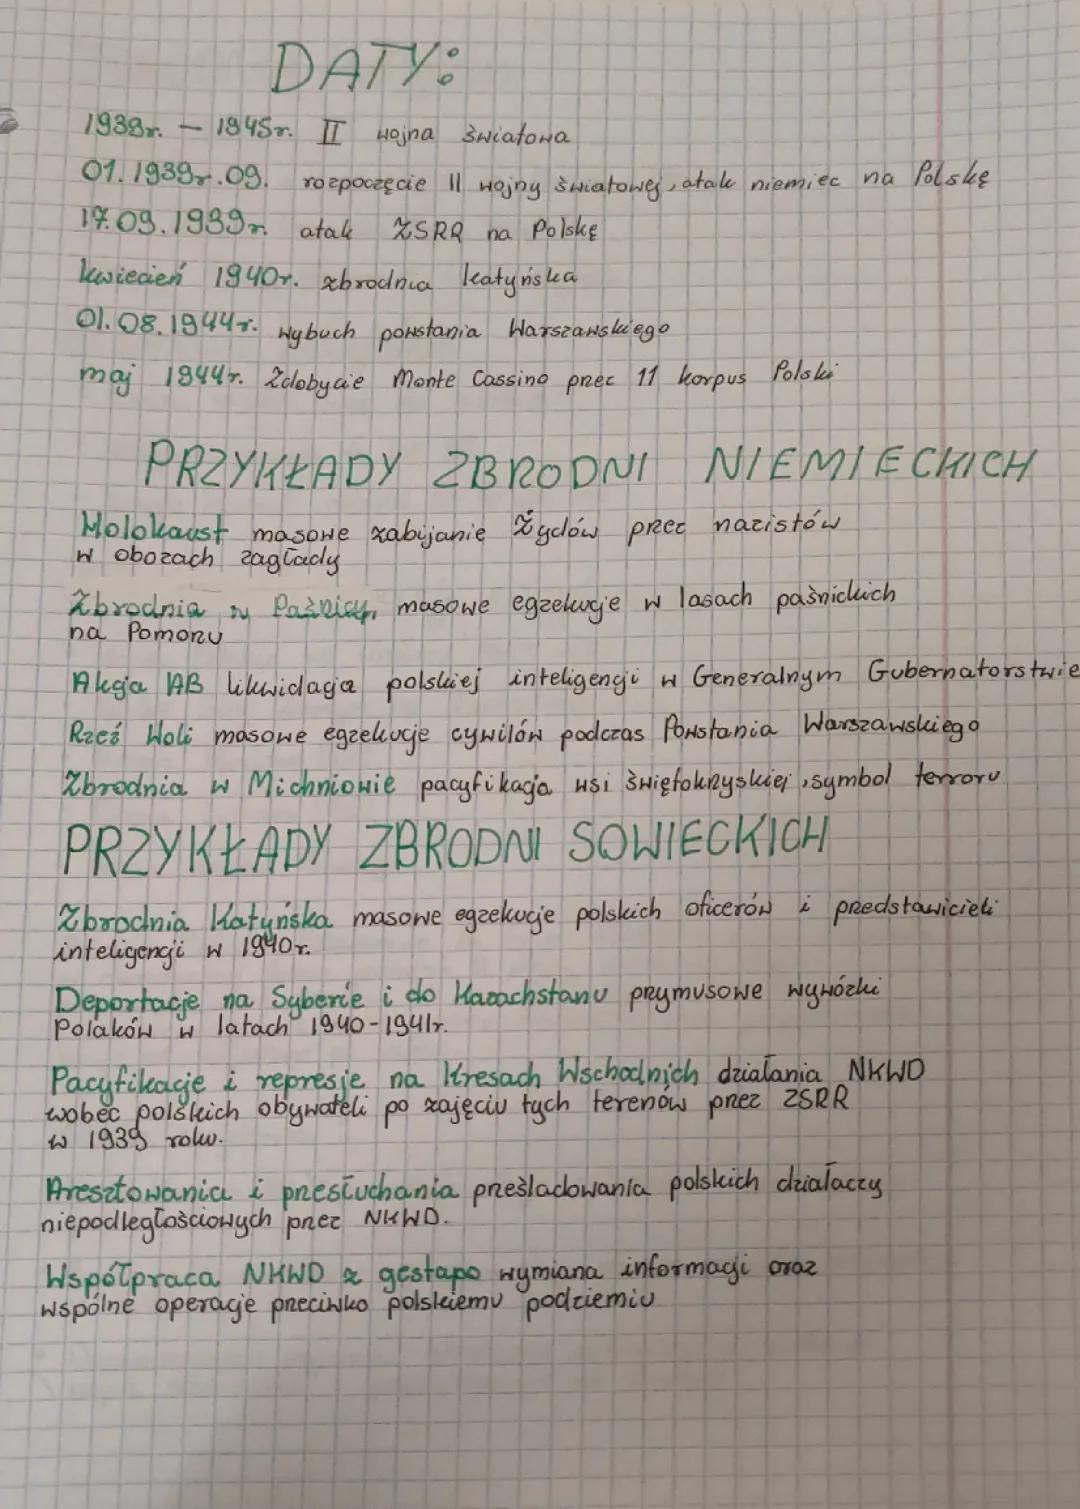 DATY:
1939r. – 1945r. II wojna światowa
01.1939r.09. rozpoczęcie II wojny światowej, atak niemiec na Polskę
17.09.1939r. atak ZSRR na Polskę
kwiecień 1940r. zbrodnia katyńska
01.08.1944r. wybuch powstania Warszawskiego
maj 1944r. Zdobycie Monte Cassino przez 11 korpus Polski
PRZYKŁADY ZBRODNI NIEMIECKICH
Holokaust masowe zabijanie Żydów przez nazistów
w obozach zagłady
Zbrodnia w Paśnicy, masowe egzekucje w lasach paśnickich
na Pomorzu
Akcja AB likwidacja polskiej inteligencji w Generalnym Gubernatorstwie
Rzeź Woli masowe egzekucje cywilów podczas Powstania Warszawskiego
Zbrodnia w Michniowie pacyfikacja wsi świętokrzyskiej, symbol terroru
PRZYKŁADY ZBRODNI SOWIECKICH
Zbrodnia Katyńska masowe egzekucje polskich oficerów i przedstawicieli
inteligencji w 1940r.
Deportacje na Syberie i do Kazachstanu przymusowe wywózki
Polaków w latach 1940-1941r.
Pacyfikacje i represje na Kresach Wschodnich działania NKWD
wobec polskich obywateli po zajęciu tych terenów przez ZSRR
w 1939 roku.
Aresztowania i przesłuchania prześladowania polskich działaczy
niepodległościowych przez NKWD.
Współpraca NKWD z gestapo wymiana informacji oraz
wspólne operacje przeciwko polskiemu podziemiu